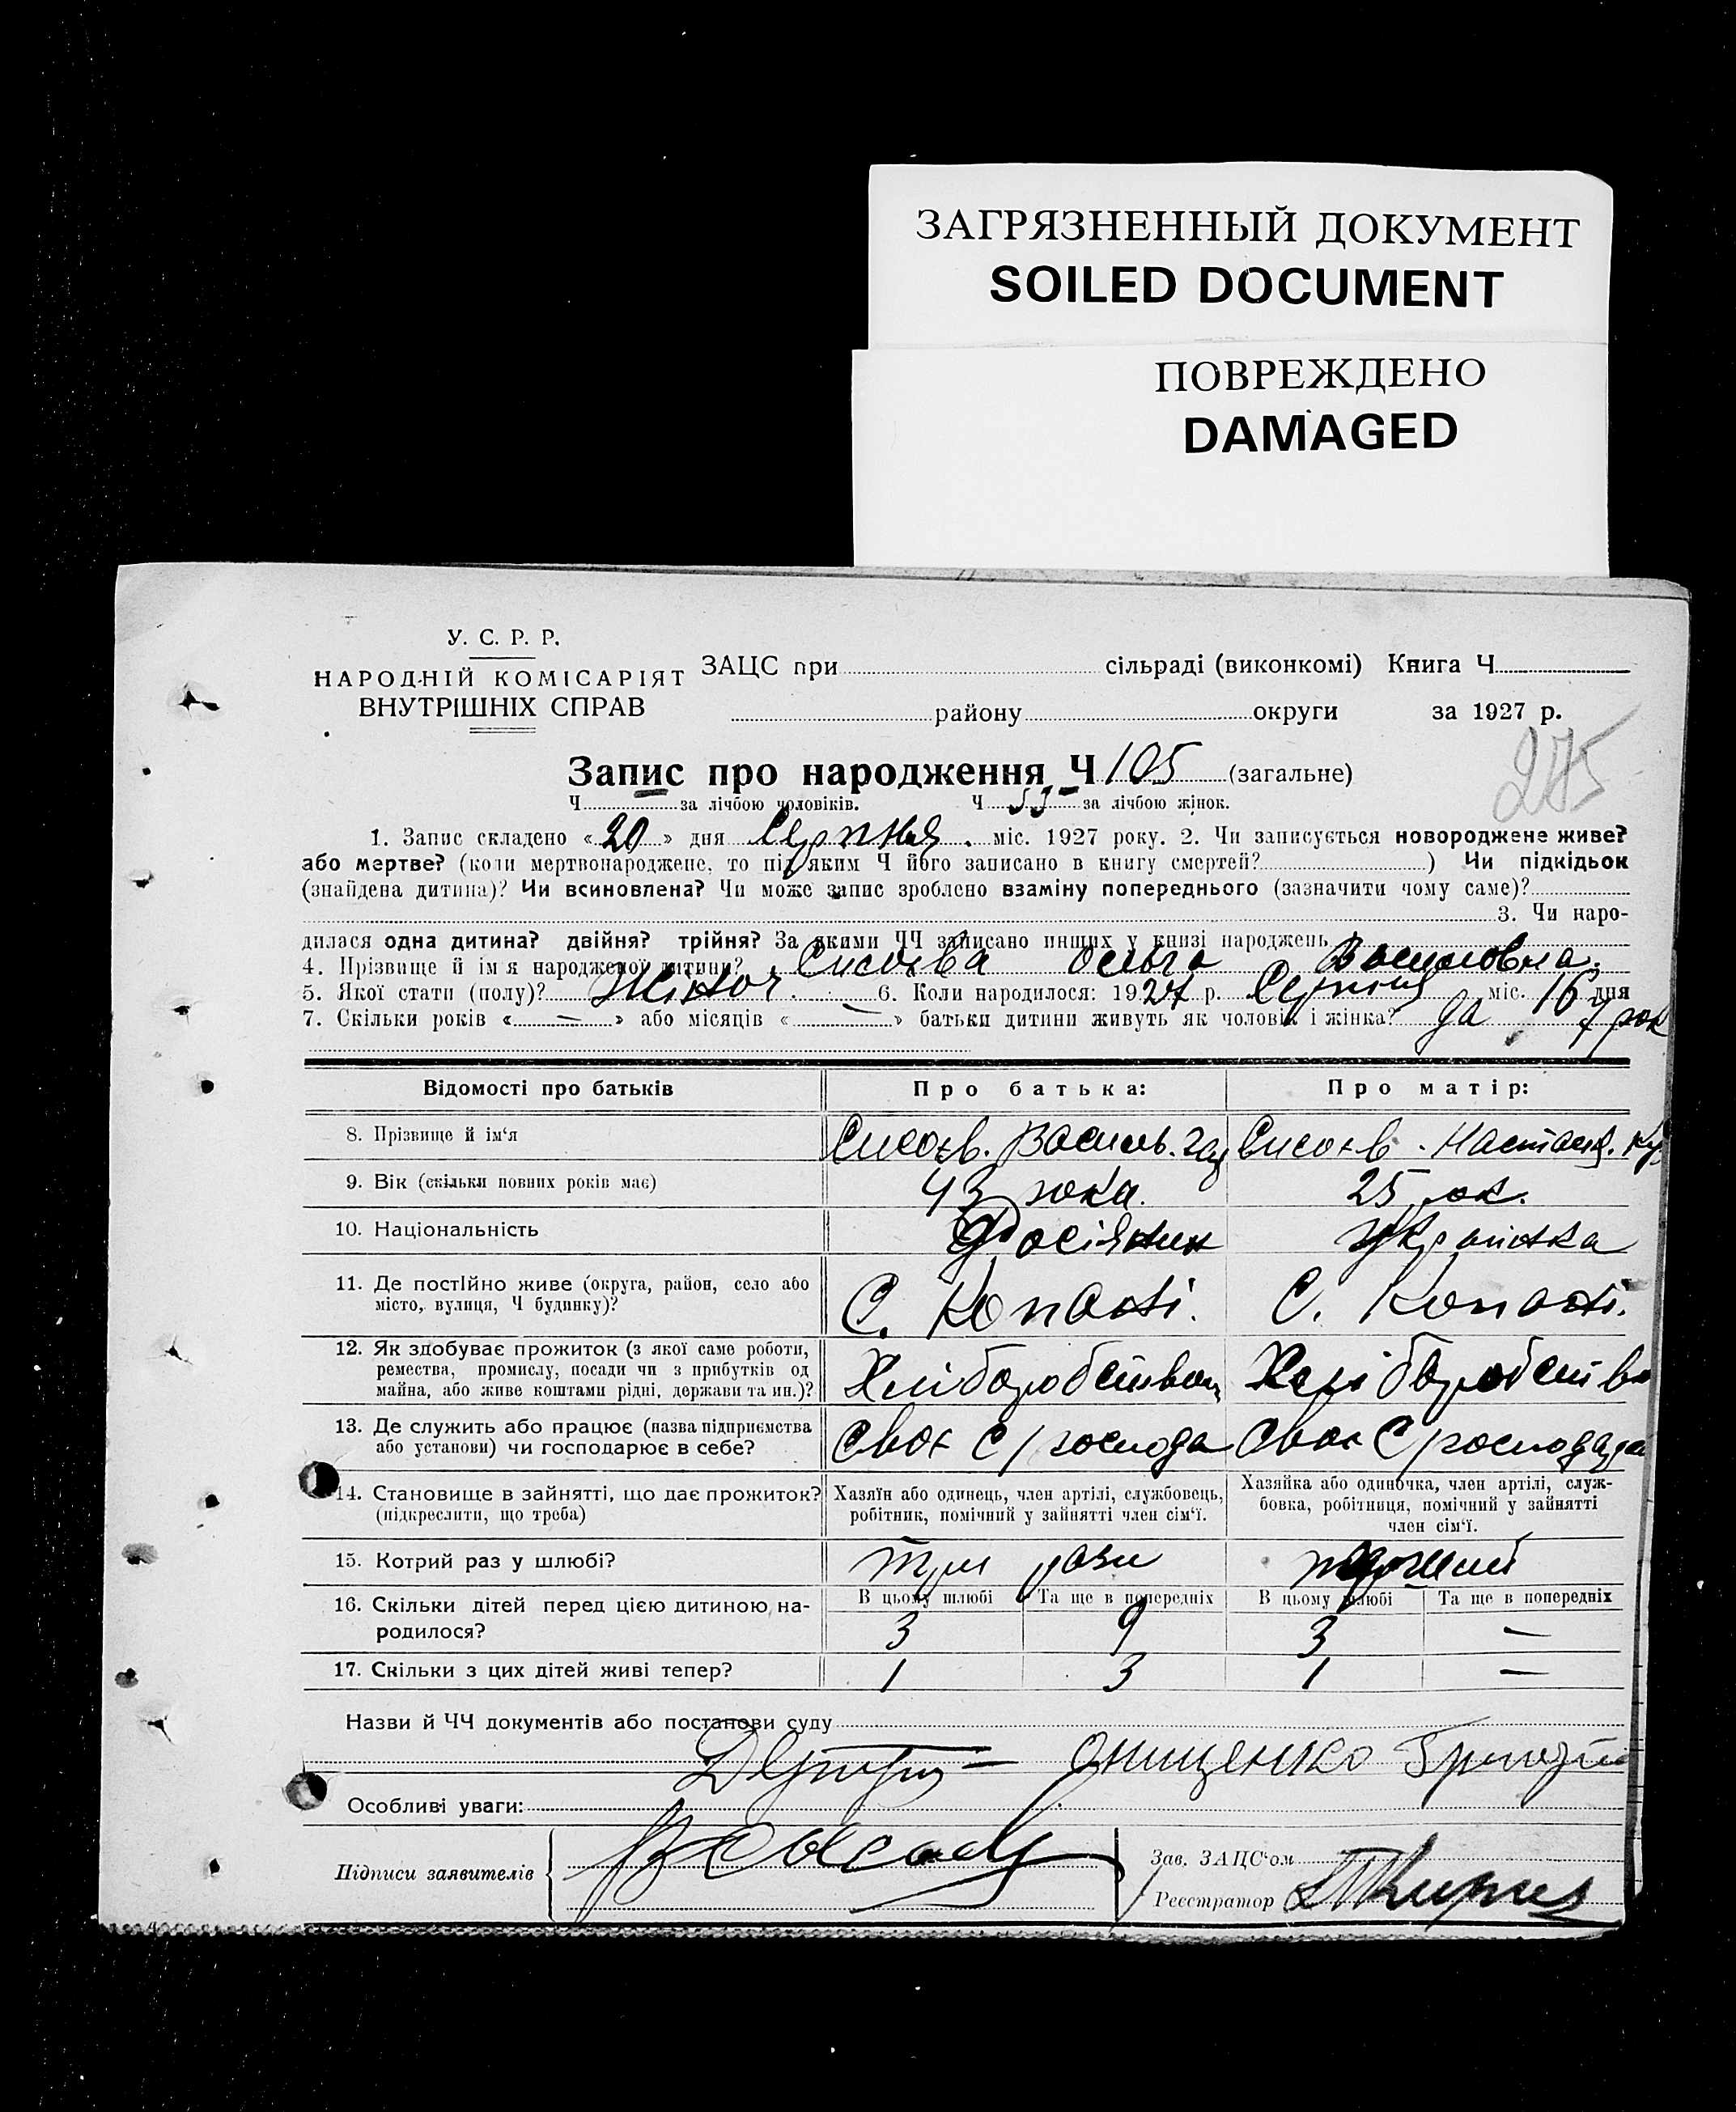 ЗАГРЯЗНЕННЫЙ ДОКУМЕНТ
SOILED DOCUMENT
ПОВРЕЖДЕНО
DAMAGED
У. С. Р. Р.
НАРОДНІЙ КОМІСАРІЯТ
ВНУТРІШНІХ СПРАВ
ЗАЦС при сільраді (виконкомі) Книга Ч
району округи за 1927 р.
275
Запис про народження Ч 105 (загальне)
Ч за лічбою чоловіків. Ч 53 за лічбою жінок.
1. Запис складено «20» дня Серпня міс. 1927 року. 2. Чи записується новороджене живе?
або мертве? (коли мертвонароджене, то під яким Ч його записано в книгу смертей? ) Чи підкідьок
(знайдена дитина)? Чи всиновлена? Чи може запис зроблено взаміну попереднього (зазначити чому саме)?
3. Чи наро-
дилася одна дитина? двійня? трійня? За якими ЧЧ записано инших у книзі народжень
4. Прізвище й ім'я народженої дитини? Сисоєва Ольга Василовна.
5. Якої стати (полу)? Жіноч. 6. Коли народилося: 1927 р. Серпня міс. 16 дня
7. Скільки років « — » або місяців « — » батьки дитини живуть як чоловік і жінка? да 7 рок
Відомості про батьків Про батька: Про матір:
8. Прізвище й ім'я Сисоєв. Василь. Сисоєв. Настася.
9. Вік (скільки повних років має) 43 рока. 25 рок.
10. Національність Росіянин Українка
11. Де постійно живе (округа, район, село або
місто, вулиця, Ч будинку)? С. Копані. С. Копані.
12. Як здобуває прожиток (з якої саме роботи,
ремества, промислу, посади чи з прибутків од
майна, або живе коштами рідні, держави та ин.)? Хліборобством Хліборобство
13. Де служить або працює (назва підприємства
або установи) чи господарює в себе? Своє С/господа Своє С/господара
14. Становище в зайнятті, що дає прожиток?
(підкреслити, що треба)
Хазяїн або одинець, член артілі, службовець,
робітник, помічний у зайнятті член сім'ї.
Хазяйка або одиночка, член артілі, служ-
бовка, робітниця, помічний у зайнятті
член сім'ї.
15. Котрий раз у шлюбі? три рази перший
16. Скільки дітей перед цією дитиною на-
родилося?
В цьому шлюбі Та ще в попередніх В цьому шлюбі Та ще в попередніх
3 9 3 —
17. Скільки з цих дітей живі тепер? 1 3 1 —
Назви й ЧЧ документів або постанови суду
Онищенко
Особливі уваги:
Підписи заявителів
Зав. ЗАЦС'ом
Реєстратор